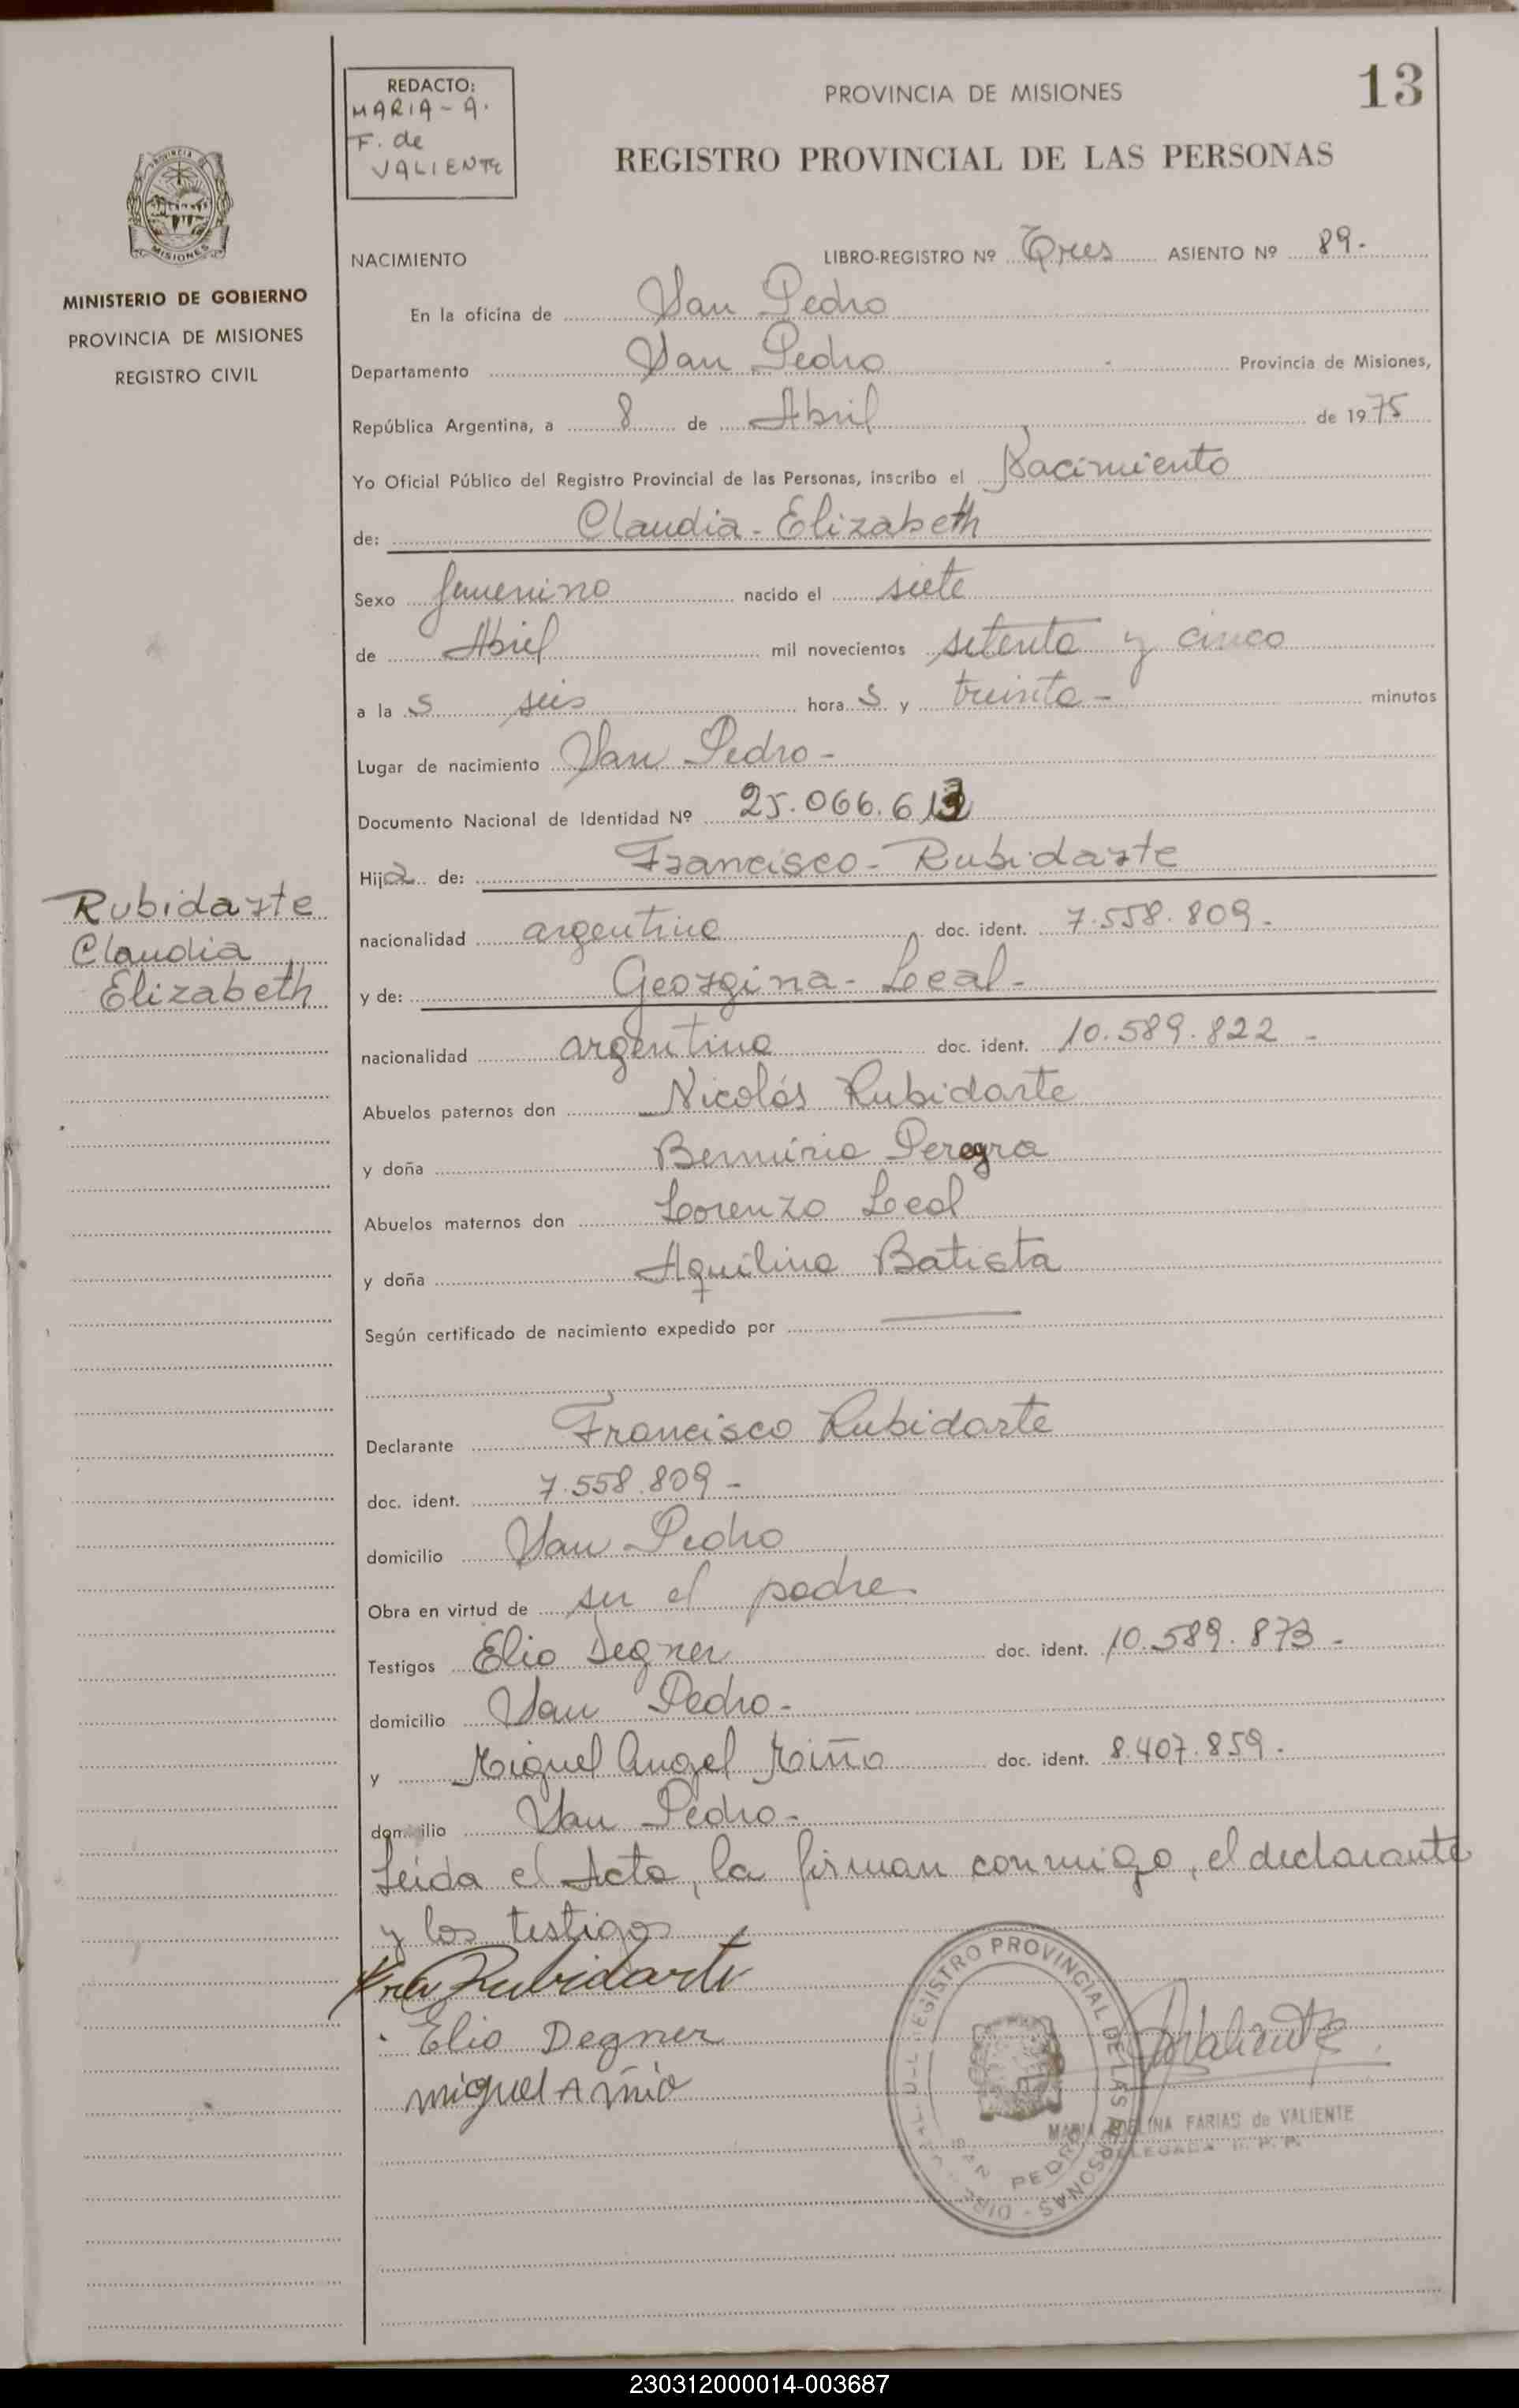 REDACTO:
MARIA-A.
F. de
VALIENTE
PROVINCIA DE MISIONES
13
REGISTRO PROVINCIAL DE LAS PERSONAS
PROVINCIA
MISIONES
MINISTERIO DE GOBIERNO
PROVINCIA DE MISIONES
REGISTRO CIVIL
NACIMIENTO LIBRO-REGISTRO Nº Tres ASIENTO Nº 89.-
En la oficina de San Pedro
Departamento San Pedro Provincia de Misiones,
República Argentina, a 8 de Abril de 1975
Yo Oficial Público del Registro Provincial de las Personas, inscribo el Nacimiento
de: Claudia-Elizabeth
Sexo femenino nacido el siete
de Abril mil novecientos setenta y cinco
a la s seis hora s y treinta - minutos
Lugar de nacimiento San Pedro-
Documento Nacional de Identidad Nº 25.066.613
Hija de: Francisco-Rubidarte
nacionalidad argentino doc. ident. 7.558.809-
y de: Georgina-Leal-
nacionalidad argentina doc. ident. 10.589.822-
Rubidarte
Claudia
Elizabeth
Abuelos paternos don Nicolás Rubidarte
y doña Pereyra
Abuelos maternos don Lorenzo Leal
y doña Aquilina Batista
Según certificado de nacimiento expedido por
Declarante Francisco Rubidarte
doc. ident. 7.558.809-
domicilio San Pedro
Obra en virtud de ser el padre-
Testigos Elio Degner doc. ident. 10.589.873-
domicilio San Pedro-
y Miguel Angel Miño doc. ident. 8.407.859.-
domicilio San Pedro-
Leída el Acta, la firman conmigo, el declarante
y los testigos
Rubidarte
Elio Degner
miguel A miño
REGISTRO PROVINCIAL DE LAS PERSONAS
SAN PEDRO
Valiente
MARIA ADELINA FARIAS de VALIENTE
DELEGADA R. P. P.
230312000014-003687